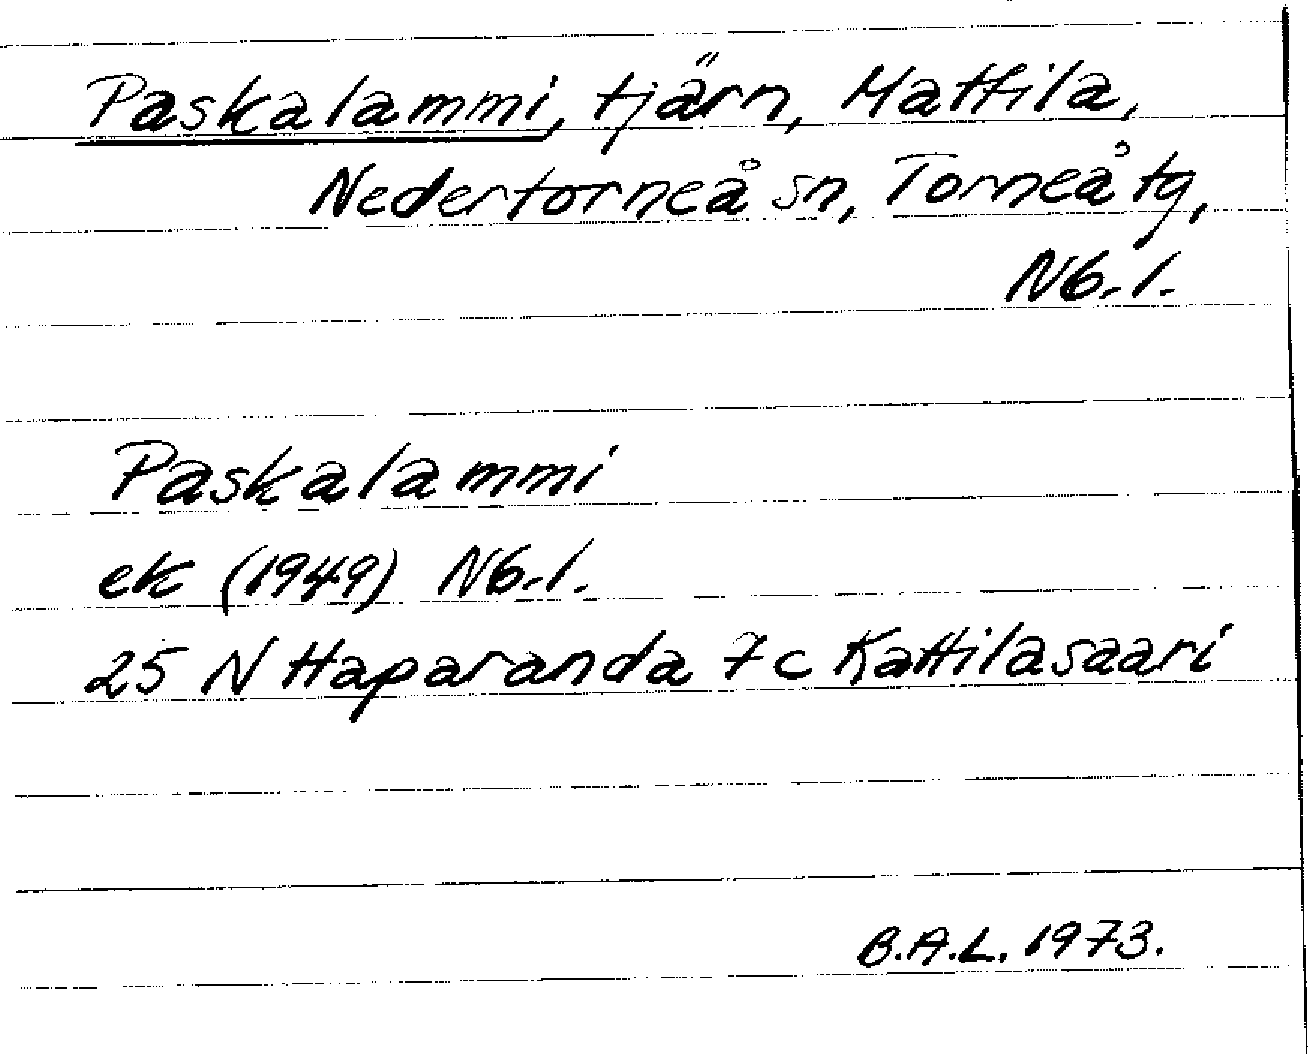 Paskalammi, tjärn, Mattila,
Nedertorneå sn, Torneå tg,
Nb. l.
Paskalammi
ek (1949) Nb. l.
25 N Haparanda 7c Kattilasaari
B.A.L. 1973.